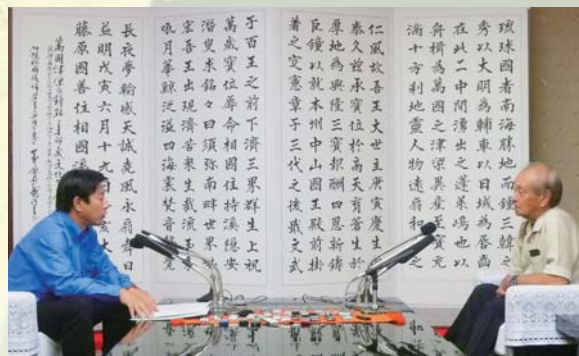 琉球國者南海勝地而鍾三韓之
秀以大明為輔車以日域為脣齒
在此二中間湧出之蓬莱嶋也以
舟楫為萬國之津梁異産至寶充
満十方刹地靈人物遠扇和之
仁風故吾王大世主庚寅慶生
泰久茲承寶位於高天育蒼生於
厚地為興隆三寶報酬四恩新鑄
巨鐘以就本州中山國王殿前掛
著之定憲章于三代之後戢文武
于百王之前下濟三界群生上祝
萬歳寶位辱命相國住持溪隠安
潜叟求銘々曰須弥南畔世界洪
宏吾王出現濟苦衆生截流玉象
吼月華鯨泛溢四海震梵音聲覺
長夜夢輸感天誠堯風永扇舜日
益明戊寅六月十九亥大
藤原國善住相國溪
萬國津梁